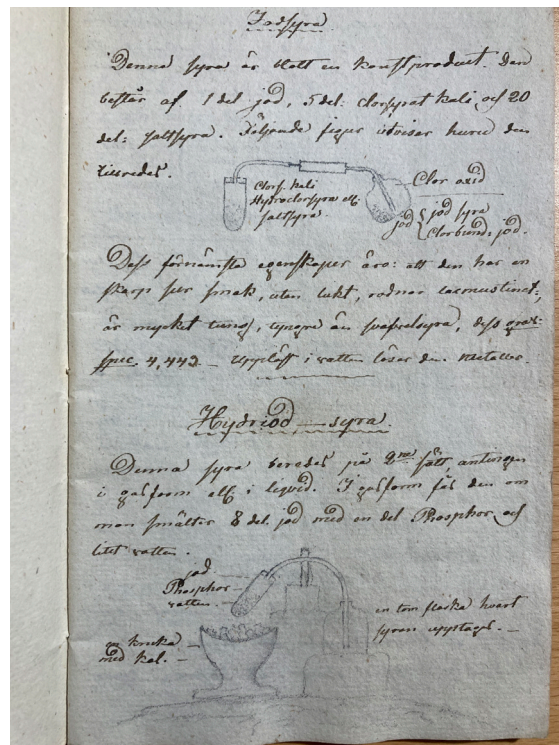 Jodsyra
Denna syra är blott en konstprodukt. Den
består af 1 del jod, 5 del: clorsyrat kali, och 20
del: saltsyra. Följande figur utviser huru den
tillredes.
Clors. kali
Hydroclorsyra ell.
saltsyra.
Clor oxid
jod
jod syra
Clorbund: jod.
Dess förnämsta egenskaper äro: att den har en
skarp sur smak, utan lukt, rodnar lacmustinct:,
är mycket tung, tyngre än svafvelsyra, dess grav:
spec. 4,442. – Upplöst i vatten löser den metaller.
Hydriod–syra.
Denna syra beredes på 2ne sätt, antingen
i gasform ell. i liqvid. I gasform fås den om
man smälter 8 del. jod med en del Phosphor och
litet vatten.
jod.
Phosphor –
vatten. –
en kruka
med kol. –
en tom flaska hvari
syran upptages. –